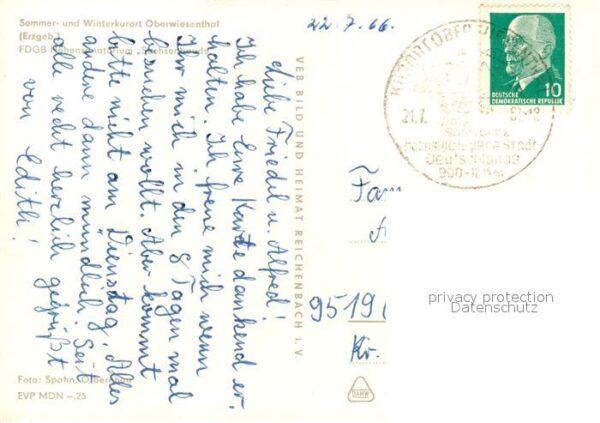 Sommer- und Winterkurort Oberwiesenthal
(Erzgeb.)
FDGB-Höhensanatorium
22.7.66.
Liebe Friedel u. Alfred!
Ich habe Eure Karte dankend er-
halten. Ich freue mich wenn
Ihr mich in den 8 Tagen mal
besuchen wollt. Aber kommt
bitte nicht am Dienstag. Alles
andere dann mündlich. Seit
alle recht herzlich gegrüßt
von Edith!
VEB BILD UND HEIMAT REICHENBACH I. V.
KURORT OBERWIESENTHAL
21.7.
höchstgelegene Stadt
Deutschlands
900-1214m
DEUTSCHE
DEMOKRATISCHE REPUBLIK
10
Fam
9519
Kr.
privacy protection
Datenschutz
Foto: Spahn,
EVP MDN -,25